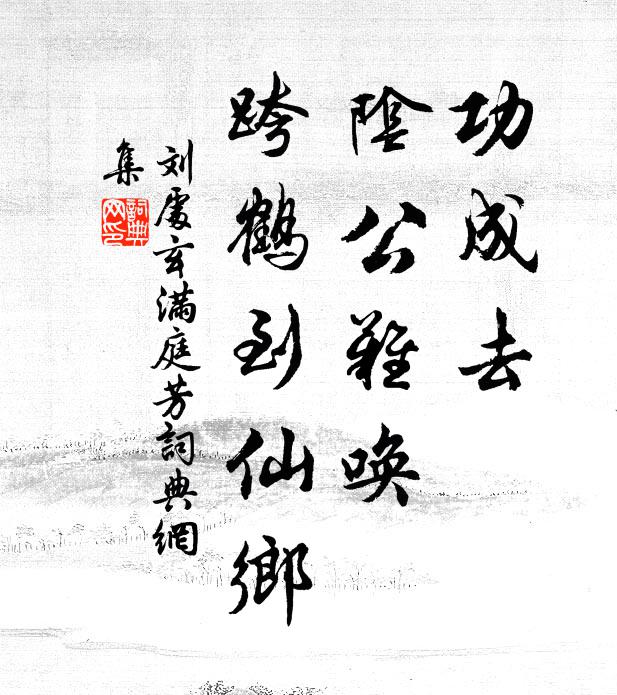 功成去
陰公難唤
跨鶴到仙鄉
刘處玄滿庭芳詞典網
集
詞典
网印